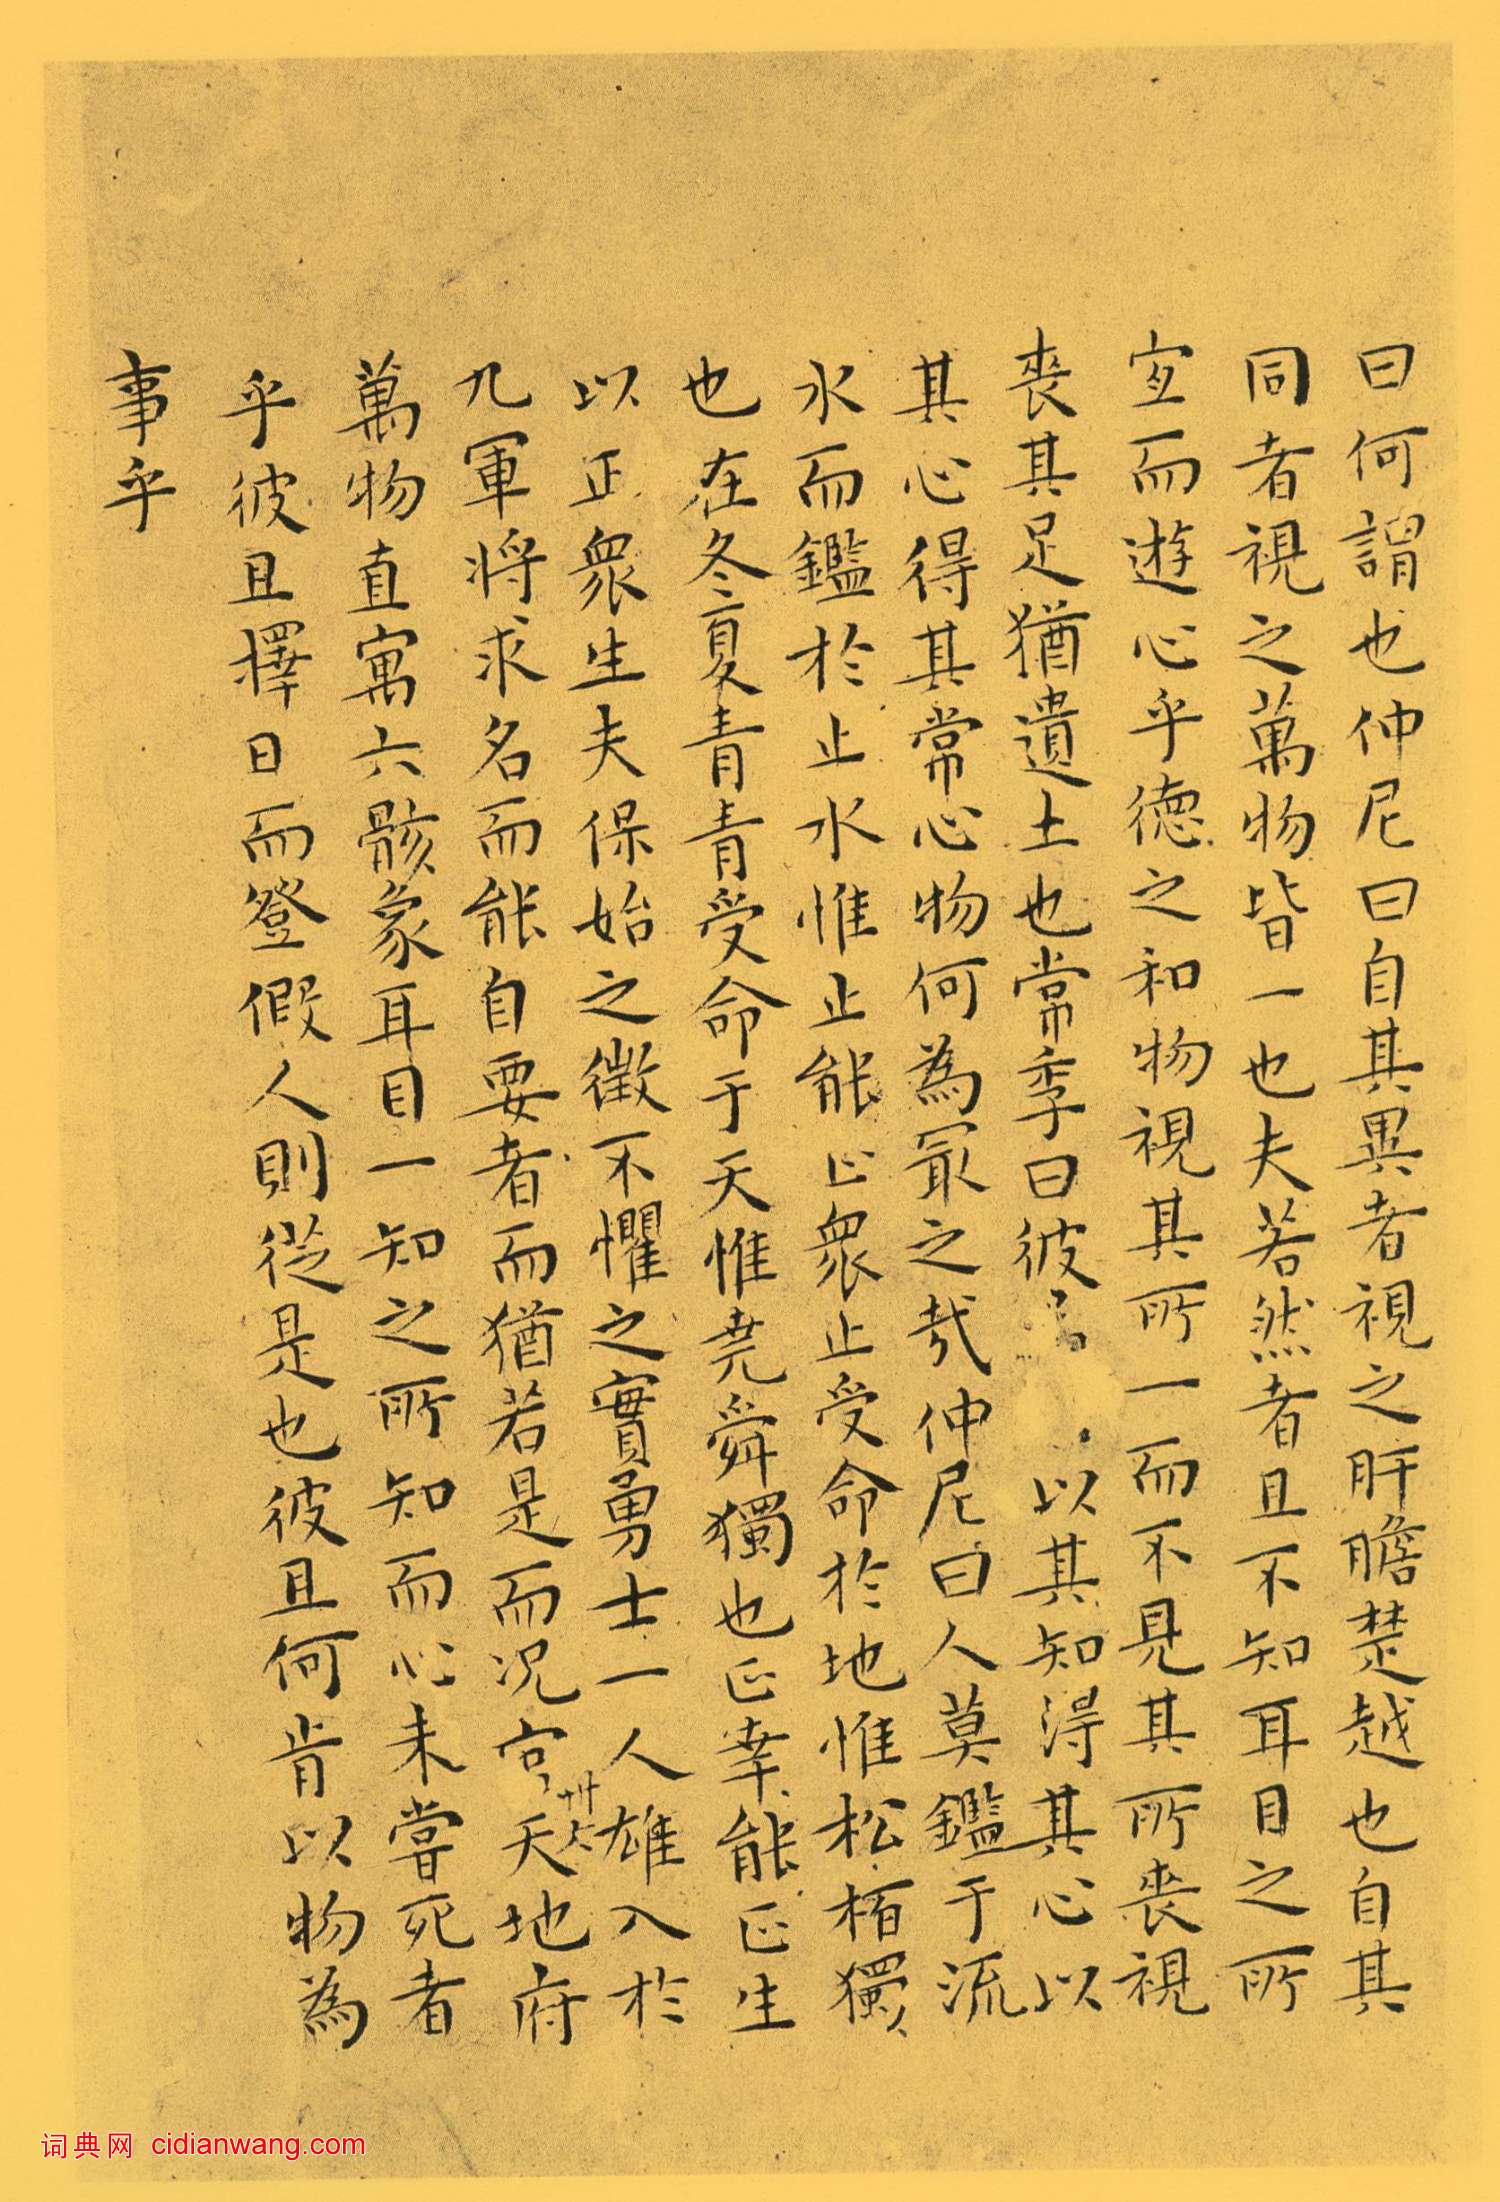 曰何謂也仲尼曰自其異者視之肝膽楚越也自其
同者視之萬物皆一也夫若然者且不知耳目之所
宜而遊心乎德之和物視其所一而不見其所喪視
喪其足猶遺土也常季曰彼以其知得其心以
其心得其常心物何為最之哉仲尼曰人莫鑑于流
水而鑑於止水惟止能止衆止受命於地惟松栢獨
也在冬夏青青受命于天惟堯舜獨也正幸能正生
以正衆生夫保始之徵不懼之實勇士一人雄入於
九軍將求名而能自要者而猶若是而况官天地府
萬物直寓六骸象耳目一知之所知而心未嘗死者
乎彼且擇日而登假人則從是也彼且何肯以物為
事乎
词典网 cidianwang.com